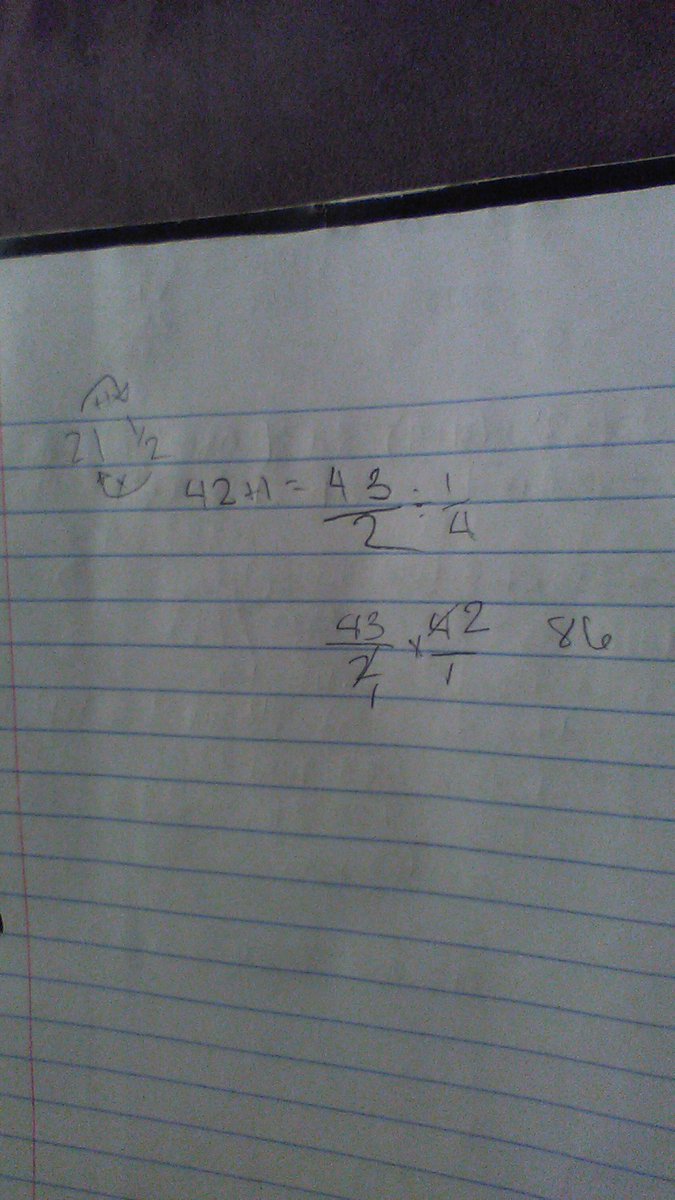 21 1/2
42+1 = 43/2 ÷ 1/4
43/2 1 × 4 2/1 86